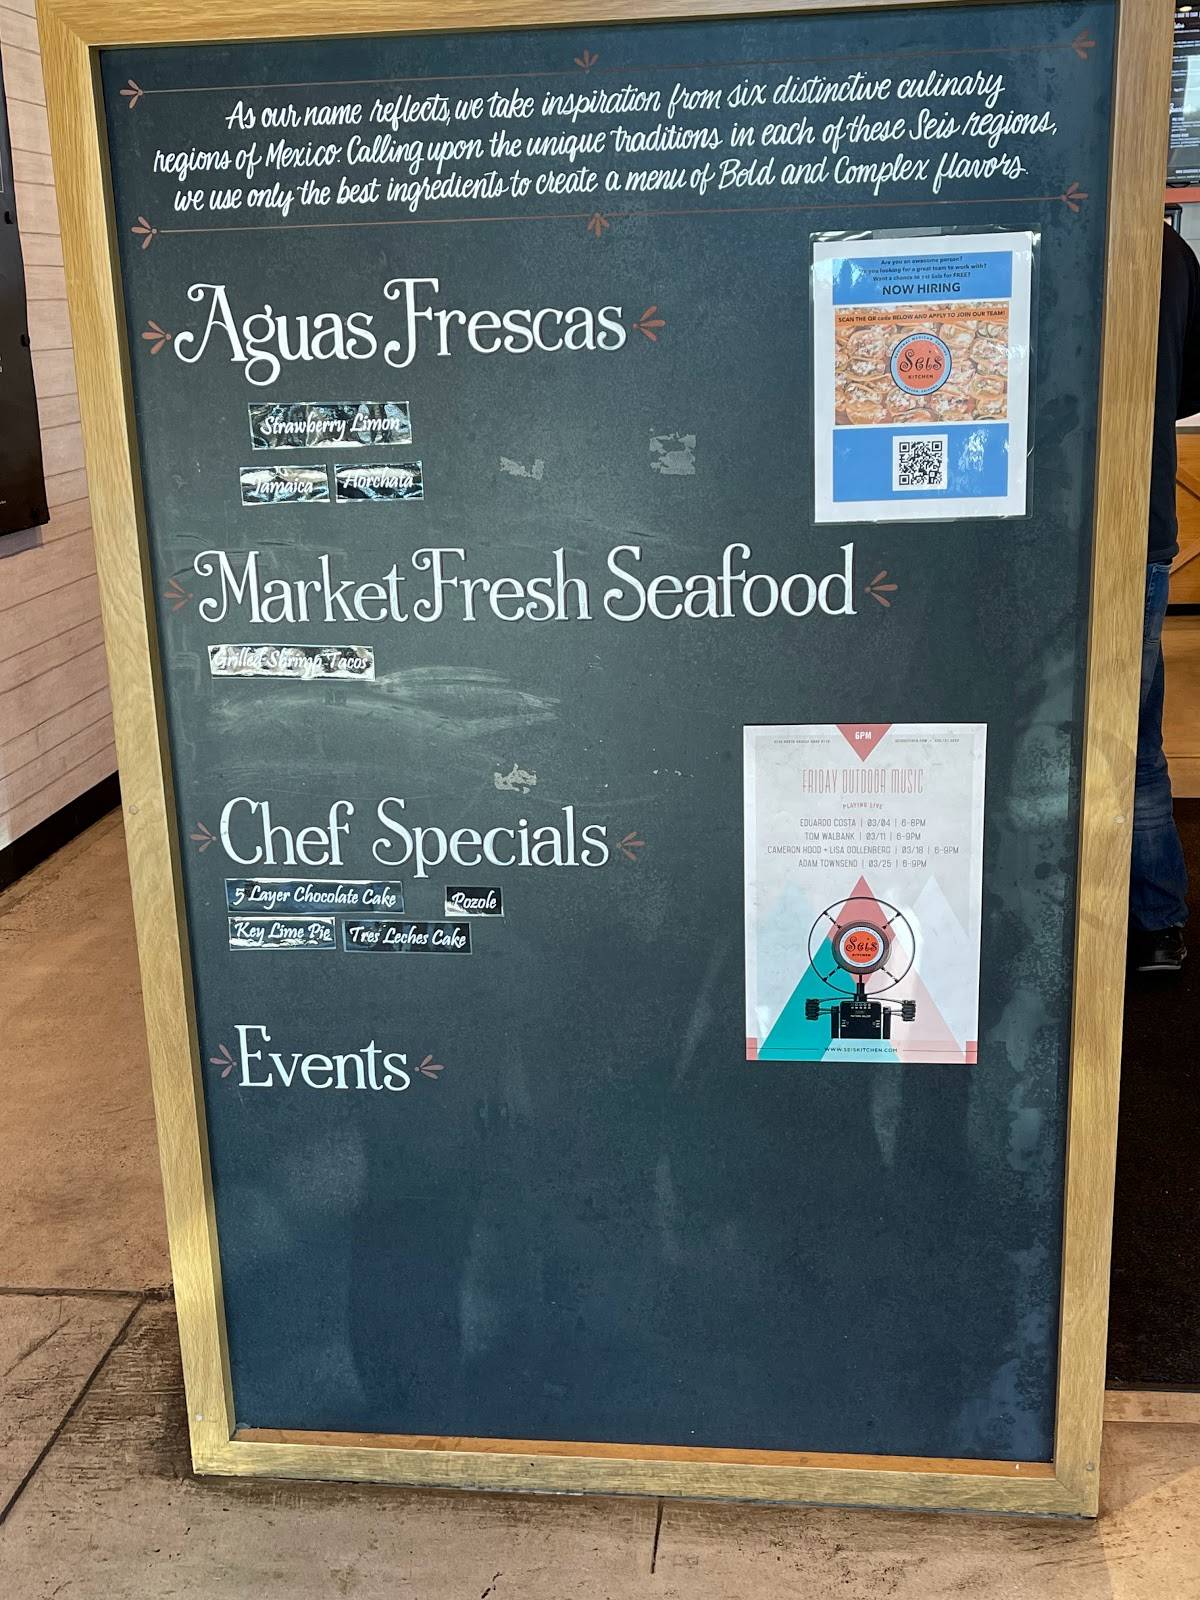 As our name reflects, we take inspiration from six distinctive culinary
regions of Mexico. Calling upon the unique traditions in each of these Seis regions,
we use only the best ingredients to create a menu of Bold and Complex flavors.
Are you an awesome person?
Are you looking for a great team to work with?
Want a chance to eat Seis for FREE?
NOW HIRING
SCAN THE QR code BELOW AND APPLY TO JOIN OUR TEAM!
Seis
KITCHEN
Aguas Frescas
Strawberry Limon
Jamaica Horchata
Market Fresh Seafood
Grilled Shrimp Tacos
6PM
FRIDAY OUTDOOR MUSIC
PLAYING LIVE
EDUARDO COSTA | 03/04 | 6-8PM
TOM WALBANK | 03/11 | 6-9PM
CAMERON HOOD + LISA OOLLENBERG | 03/18 | 6-9PM
ADAM TOWNSEND | 03/25 | 6-9PM
Seis
KITCHEN
WWW.SEISKITCHEN.COM
Chef Specials
5 Layer Chocolate Cake Pozole
Key Lime Pie Tres Leches Cake
Events